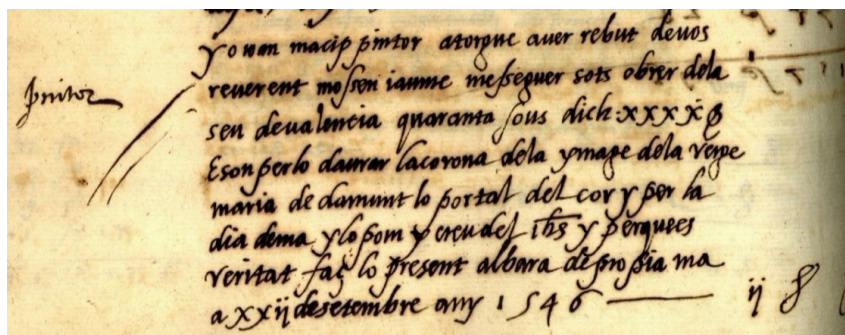 yo Joan macip pintor atorgue auer rebut deuos
pintor
reuerent mossen iaume messeguer sots obrer dela
seu deualencia quaranta sous dich xxxx ß
Eson perlo daurar lacorona dela ymage dela verge
maria de damunt lo portal del cor y per la
dia dema ylo pom y creu del ihs y perquees
veritat faç lo present albara de propia ma
a xxij desetembre any 1546 ij ß